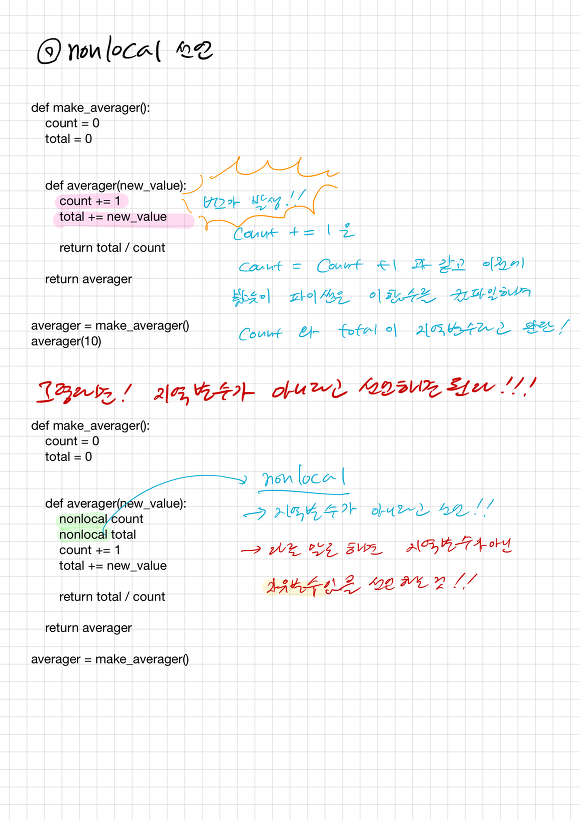 nonlocal 선언
def make_averager():
count = 0
total = 0
def averager(new_value):
count += 1
total += new_value
return total / count
return averager
averager = make_averager()
averager(10)
버그가 발생!!
Count += 1 은
Count = Count +1 과 같고
파이썬은 이 함수를 컴파일하며
Count 와 total이 지역변수라고 판단!
그렇다면! 지역변수가 아니라고 선언하면 된다!!!
def make_averager():
count = 0
total = 0
def averager(new_value):
nonlocal count
nonlocal total
count += 1
total += new_value
return total / count
return averager
averager = make_averager()
nonlocal
→ 지역변수가 아니라고 선언!!
→ 다른 말로 하면 지역변수가 아닌
자유변수임을 선언하는 것!!